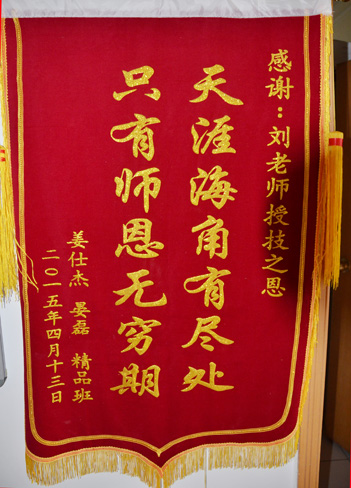 感谢：刘老师授技之恩
天涯海角有尽处
只有师恩无穷期
姜仕杰 晏磊 精品班
二〇一五年四月十三日